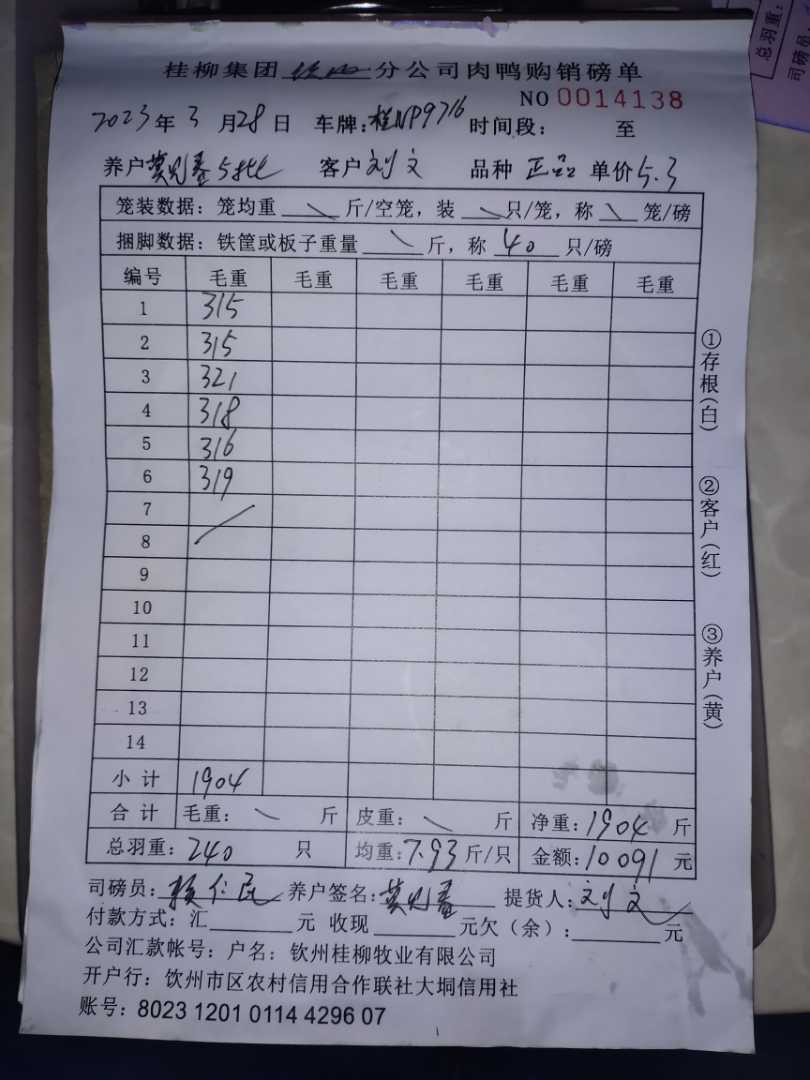 桂柳集团 分公司肉鸭购销磅单
NO 0014138
2023年3月28日 车牌:桂NP9716 时间段: 至
养户 客户刘文 品种 正品 单价5.3
笼装数据:笼均重 斤/空笼,装 只/笼,称 笼/磅
捆脚数据:铁筐或板子重量 斤,称 40 只/磅
编号 毛重 毛重 毛重 毛重 毛重 毛重
1 315
2 315
3 321
4 318
5 316
6 319
7
8
9
10
11
12
13
14
小计 1904
合计 毛重: 斤 皮重: 斤 净重:1904斤
总羽重:240 只 均重:7.93斤/只 金额:10091元
司磅员: 养户签名: 提货人:刘文
付款方式:汇 元 收现 元欠(余): 元
公司汇款帐号:户名:钦州桂柳牧业有限公司
开户行:钦州市区农村信用合作联社大垌信用社
账号:8023 1201 0114 4296 07
①存根(白)
②客户(红)
③养户(黄)
总羽重:
司磅员: